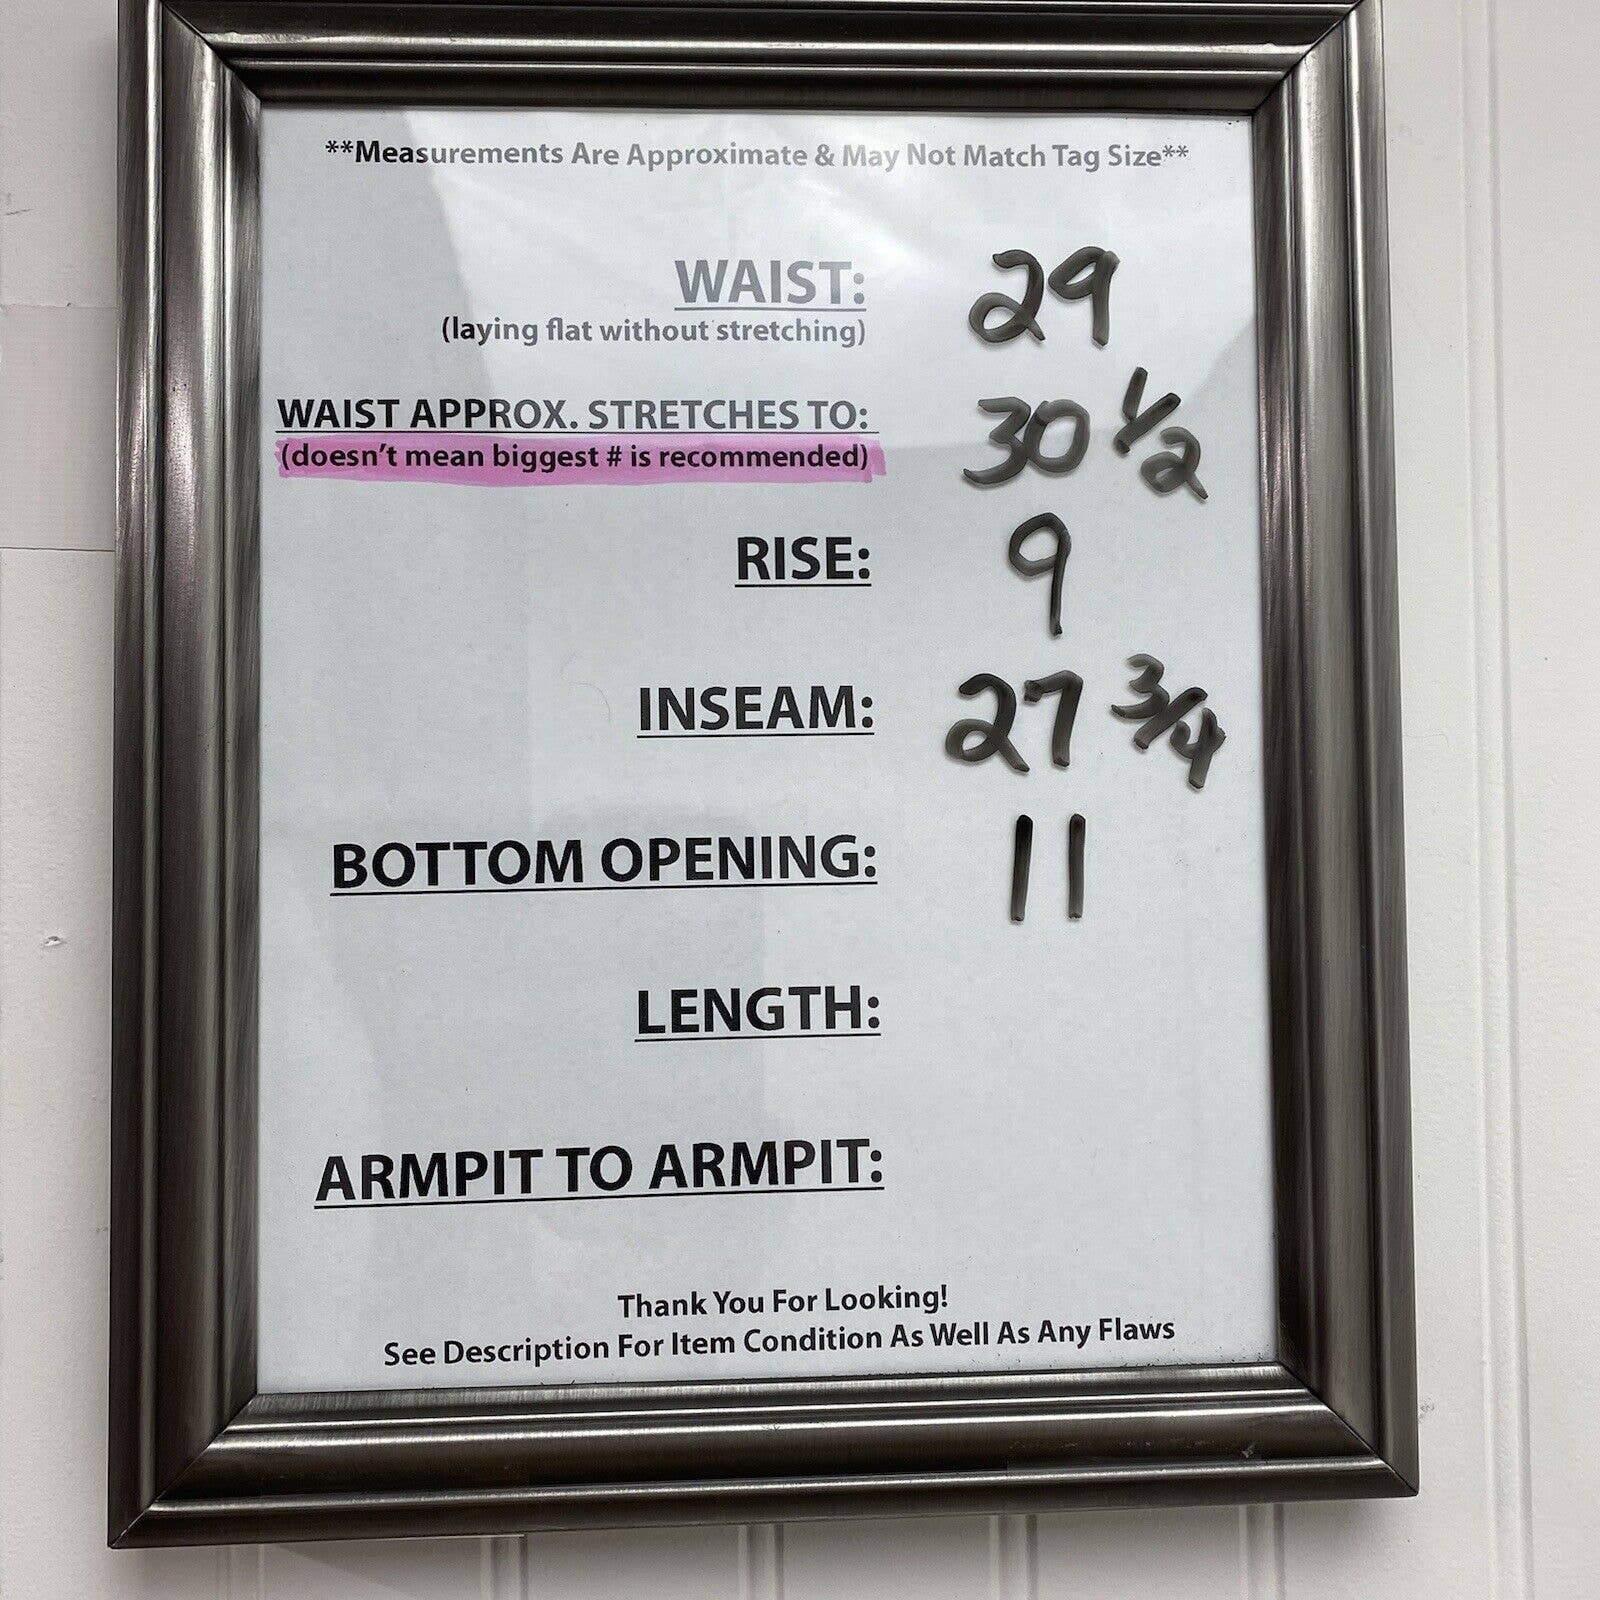 **Measurements Are Approximate & May Not Match Tag Size**
WAIST: 29
(laying flat without stretching)
WAIST APPROX. STRETCHES TO: 30 1/2
(doesn't mean biggest # is recommended)
RISE: 9
INSEAM: 27 3/4
BOTTOM OPENING: 11
LENGTH:
ARMPIT TO ARMPIT:
Thank You For Looking!
See Description For Item Condition As Well As Any Flaws